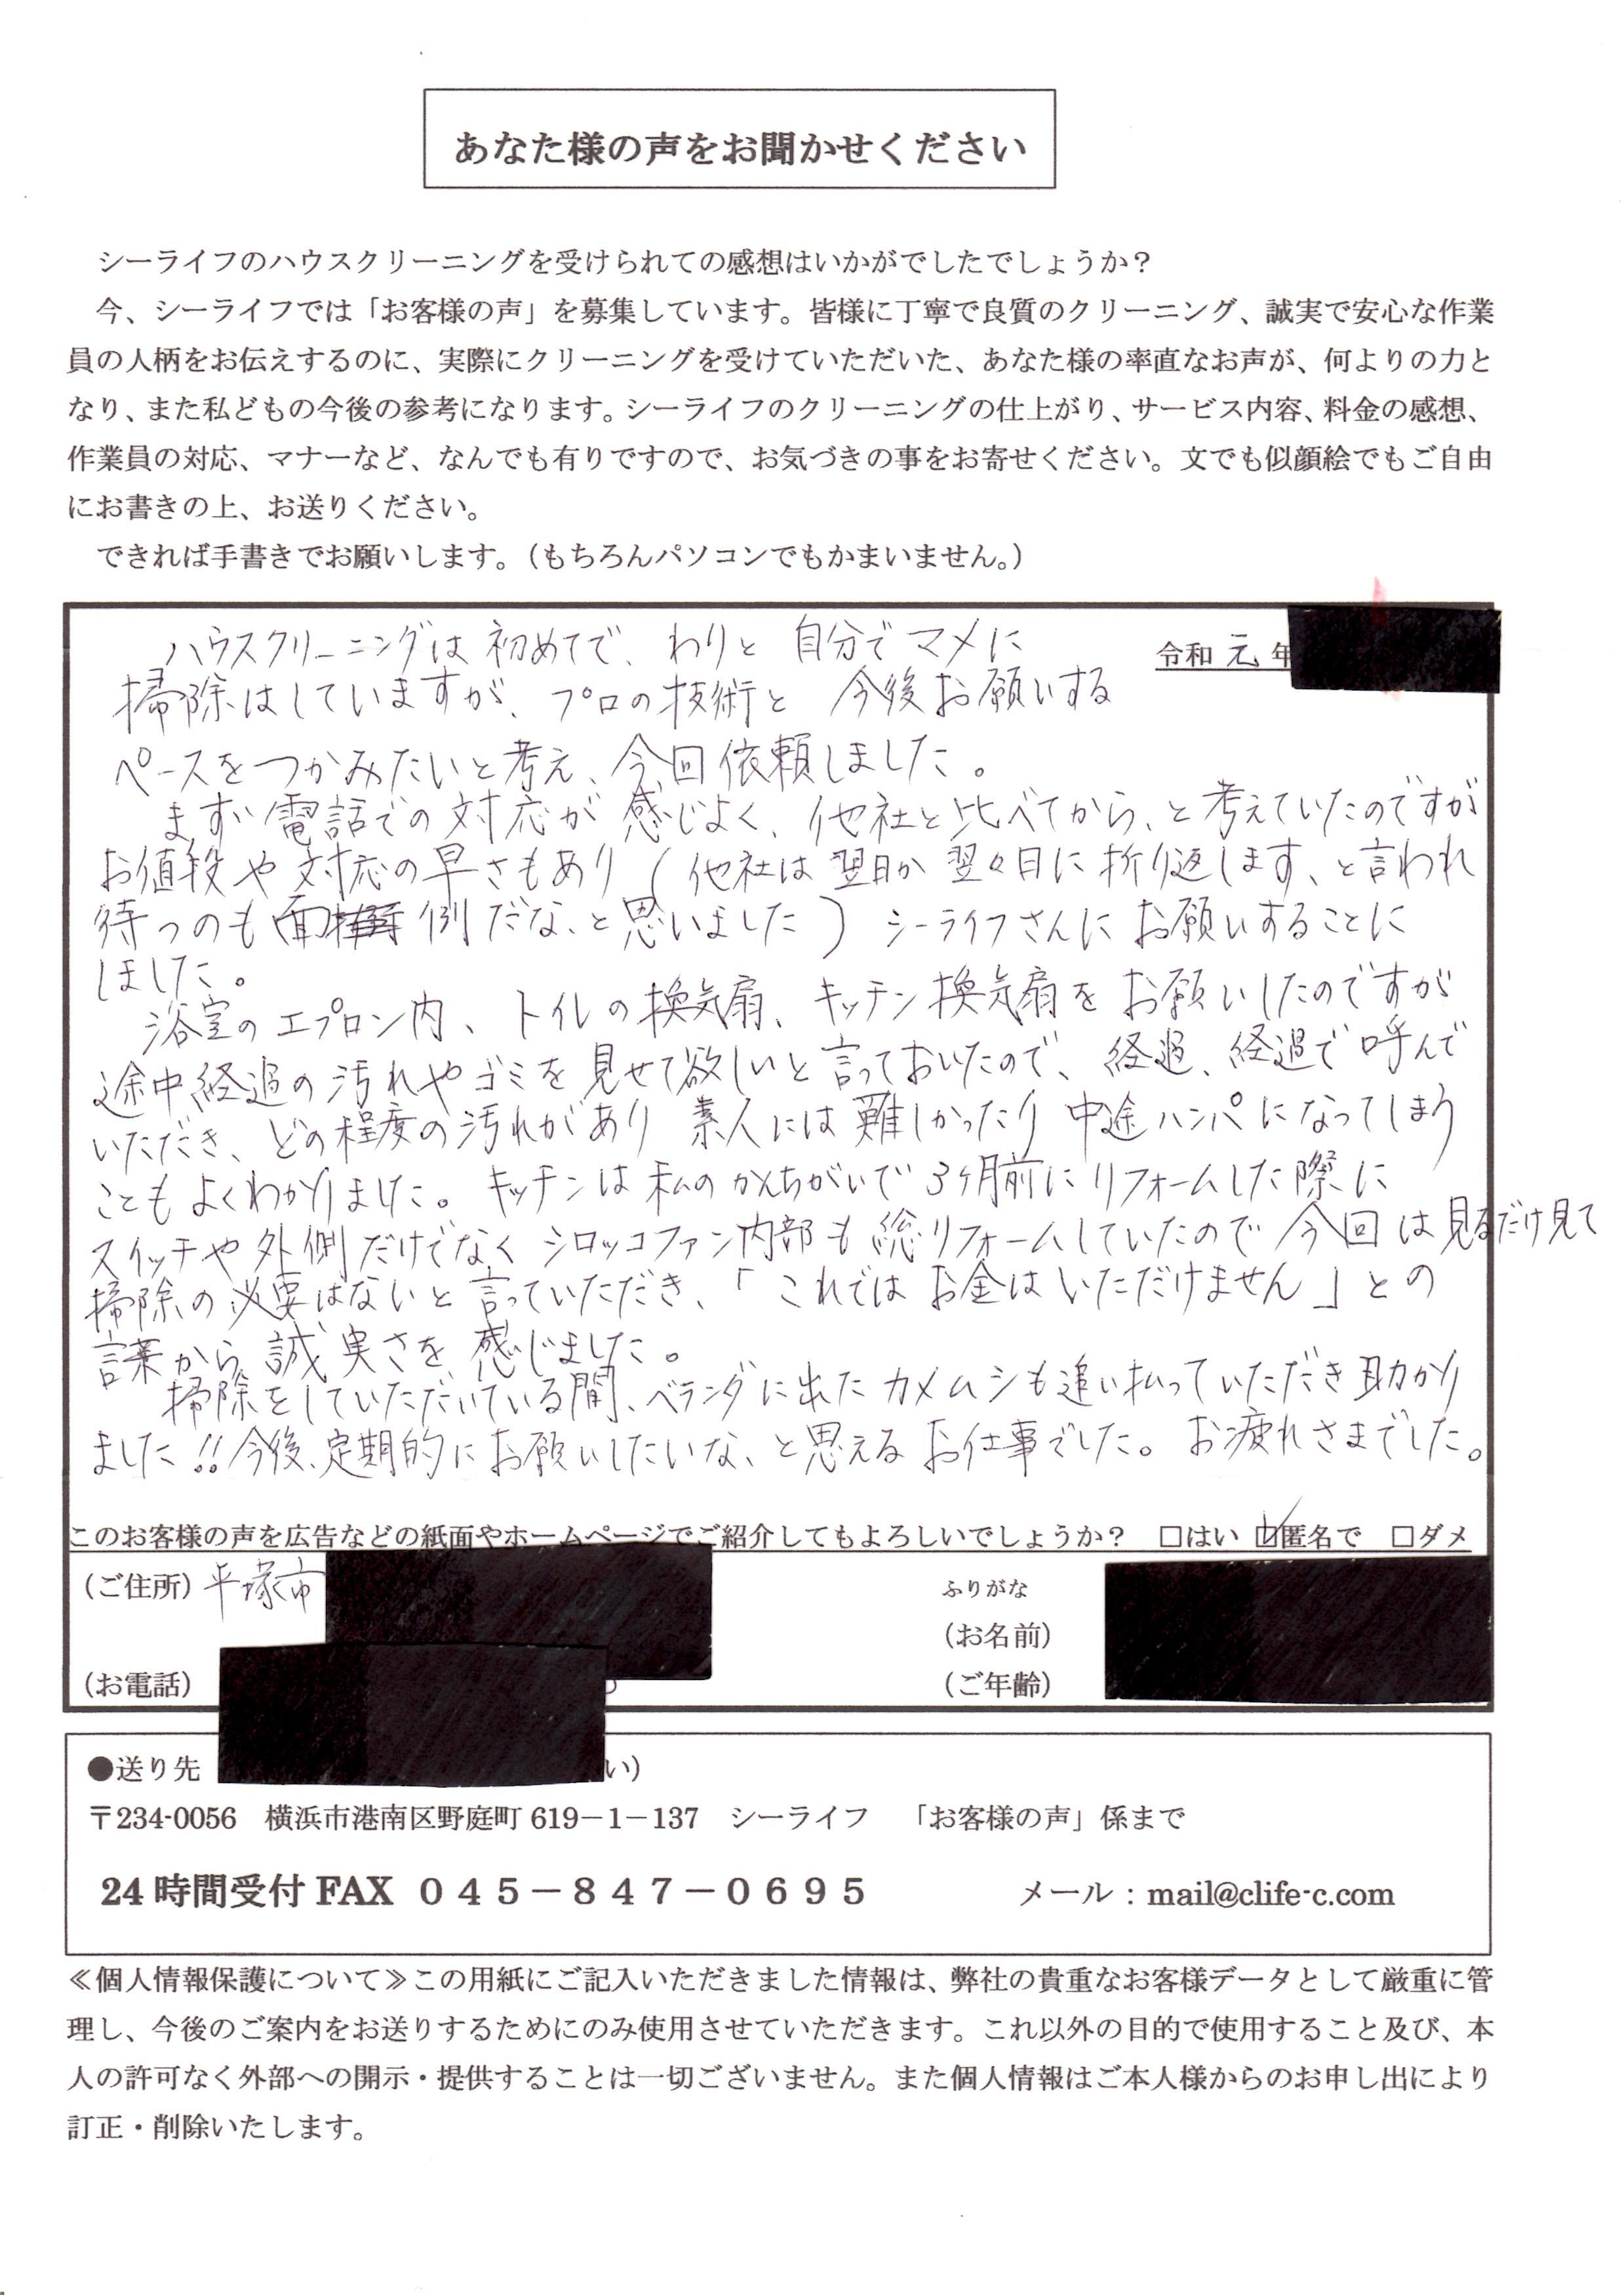 あなた様の声をお聞かせください
シーライフのハウスクリーニングを受けられての感想はいかがでしたでしょうか？
今、シーライフでは「お客様の声」を募集しています。皆様に丁寧で良質のクリーニング、誠実で安心な作業
員の人柄をお伝えするのに、実際にクリーニングを受けていただいた、あなた様の率直なお声が、何よりの力と
なり、また私どもの今後の参考になります。シーライフのクリーニングの仕上がり、サービス内容、料金の感想、
作業員の対応、マナーなど、なんでも有りですので、お気づきの事をお寄せください。文でも似顔絵でもご自由
にお書きの上、お送りください。
できれば手書きでお願いします。（もちろんパソコンでもかまいません。）
令和 元 年
ハウスクリーニングは 初めてで、わりと 自分で マメに
掃除はしていますが、プロの技術と 今後お願いする
ペースをつかみたいと考え、今回依頼しました。
まず 電話での対応が 感じよく、他社と比べてから、と考えていたのですが
お値段や対応の早さもあり（他社は翌日か翌々日に折り返します、と言われ
待つのも面倒だな、と思いました）シーライフさんにお願いすることに
しました。
浴室のエプロン内、トイレの換気扇、キッチン換気扇をお願いしたのですが
途中経過の汚れやゴミを見せて欲しいと言っておいたので、経過、経過で呼んで
いただき、どの程度の汚れがあり 素人には難しかったり 中途ハンパになってしまう
こともよくわかりました。キッチンは私のかんちがいで3ヶ月前にリフォームした際に
スイッチや外側だけでなく シロッコファン内部も総リフォームしていたので今回は見るだけ見て
掃除の必要はないと言っていただき、「これではお金はいただけません」との
言葉から誠実さを感じました。
掃除をしていただいている間、ベランダに出たカメムシも追い払っていただき助かり
ました!!今後、定期的にお願いしたいな、と思えるお仕事でした。お疲れさまでした。
このお客様の声を広告などの紙面やホームページでご紹介してもよろしいでしょうか？ □はい ☑匿名で □ダメ
（ご住所）平塚市
ふりがな
（お名前）
（お電話）
（ご年齢）
●送り先 い）
〒234-0056 横浜市港南区野庭町619－1－137 シーライフ 「お客様の声」係まで
24時間受付FAX ０４５－８４７－０６９５ メール：mail@clife-c.com
≪個人情報保護について≫この用紙にご記入いただきました情報は、弊社の貴重なお客様データとして厳重に管
理し、今後のご案内をお送りするためにのみ使用させていただきます。これ以外の目的で使用すること及び、本
人の許可なく外部への開示・提供することは一切ございません。また個人情報はご本人様からのお申し出により
訂正・削除いたします。